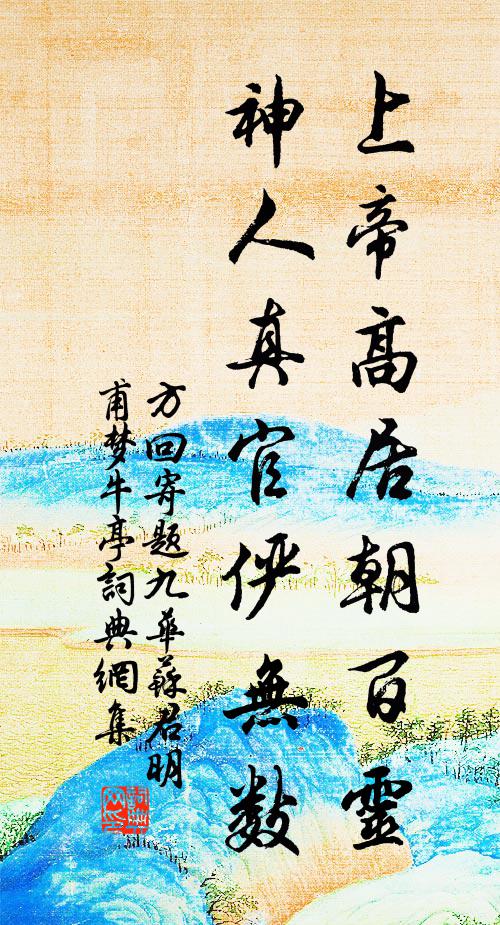 上帝高居朝百靈
神人真官伻無数
方回寄題九華蘇君明
甫梦牛亭詞典網集